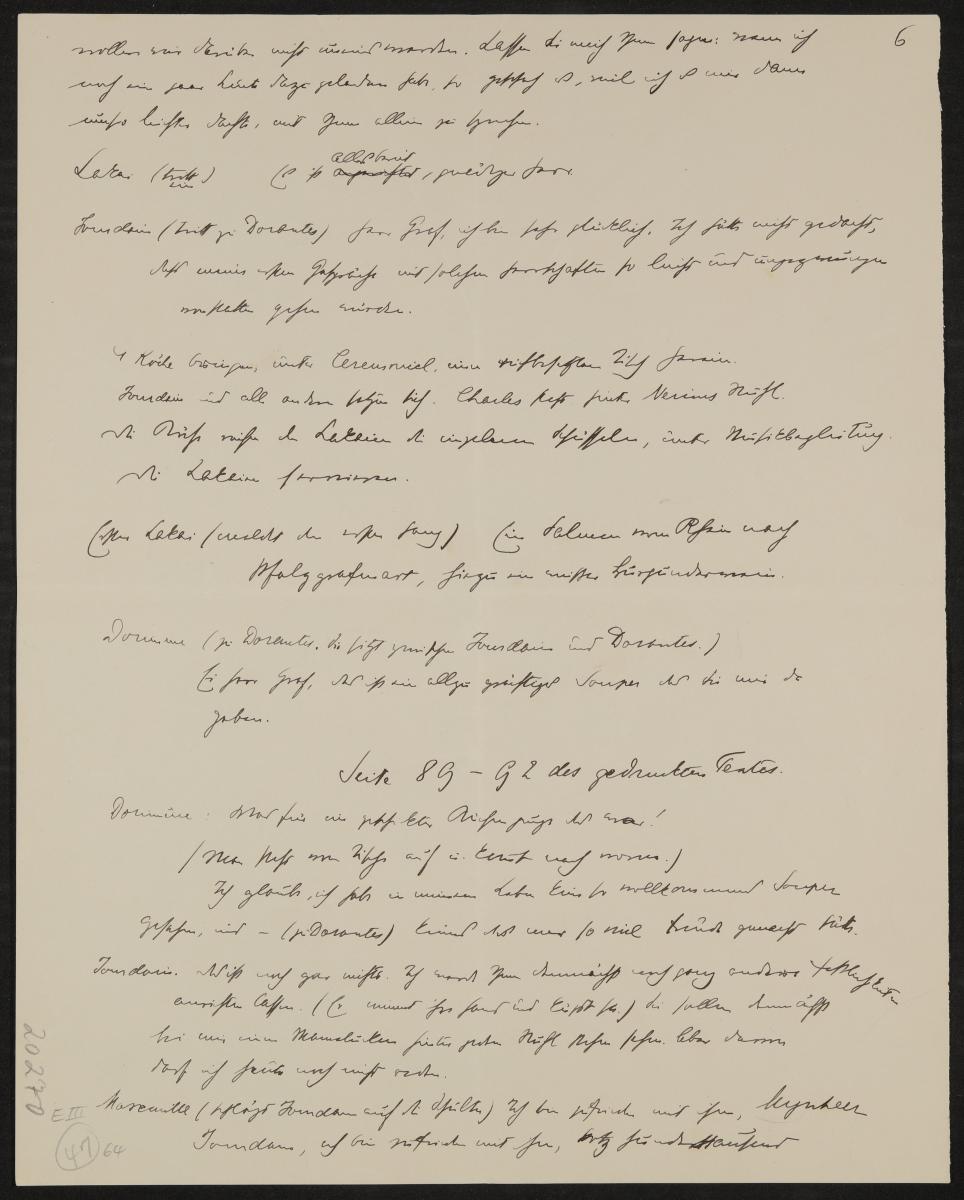 6
wollen wir darüber nicht uneins werden. Lassen Sie mich Ihnen sagen: wenn ich
noch ein paar Leute dazu geladen habe, so geschah es, weil ich es mir dann
umso leichter dachte, mit Ihnen allein zu sprechen.
Lakai (tritt ein) Es ist alles bereit, gnädiger Herr.
Jourdain (tritt zu Dorantes) Herr Graf, ich bin sehr glücklich. Ich hätte nicht gedacht,
daß meine ersten mit solchen Herrschaften so leicht und ungezwungen
von statten gehen würden.
4 Köche bringen, unter Ceremoniel, einen Tisch herein.
Jourdain und alle andern setzen sich. Charles steht hinter Nerines Stuhl.
Die Köche reichen den Lakaien die einzelnen Schüsseln, unter Musikbegleitung.
Die Lakaien servieren.
Erster Lakai (meldet den ersten Gang) Ein Salmen vom Rhein nach
Pfalzgrafenart, hiezu ein weißer Burgunderwein.
Dorimene (zu Dorantes. Sie sitzt zwischen Jourdain und Dorantes.)
Ei Herr Graf, das ist ein allzu Souper das Sie mir da
geben.
Seite 89 – 92 des gedruckten Textes.
Dorimène: Was für ein geschickter Küchenjunge das war!
(Man steht vom Tische auf u. kommt nach vorne.)
Ich glaube, ich habe in meinem Leben kein so vollkommenes Souper
gesehen, und – (zu Dorantes) keines das mir so viel Freude gemacht hätte.
Jourdain. Das ist noch gar nichts. Ich werde Ihnen demnächst noch ganz andere Festlichkeiten
anrichten lassen. (Er nimmt ihre Hand und küßt sie.) Sie sollen demnächst
bei mir einen Mamelucken hinter jedem Stuhl stehen sehen. Aber davon
darf ich heute noch nicht reden.
Mascarille (schlägt Jourdain auf die Schulter) Ich bin zufrieden mit Ihnen, Mynheer
Jourdain, ich bin zufrieden mit Ihnen, potz hunderttausend
20270
E III
47
64